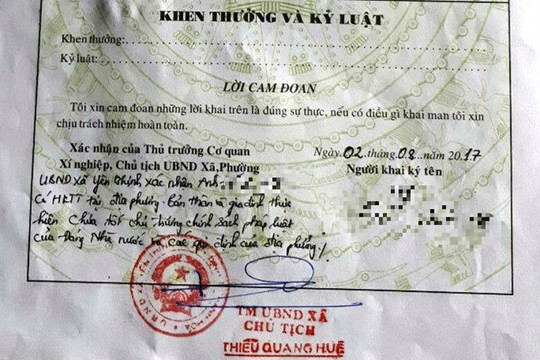 KHEN THƯỞNG VÀ KỶ LUẬT
Khen thưởng:
Kỷ luật:
LỜI CAM ĐOAN
Tôi xin cam đoan những lời khai trên là đúng sự thực, nếu có điều gì khai man tôi xin
chịu trách nhiệm hoàn toàn.
Xác nhận của Thủ trưởng Cơ quan
Xí nghiệp, Chủ tịch UBND Xã,Phường
Ngày 02 tháng 08 năm 2017
Người khai ký tên
UBND Xã Yên Thịnh xác nhận Anh
Có HKTT tại địa phương. Bản thân và gia đình thực
hiện chưa tốt chủ trương chính sách pháp luật
của Đảng Nhà nước và các quy định của địa phương./.
TM UBND XÃ
CHỦ TỊCH
THIỀU QUANG HUẾ